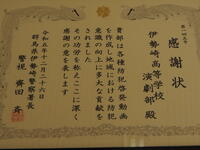 第一四五号
感謝状
伊勢崎高等学校
演劇部殿
貴部は各種防犯啓発動画
を作成し地域における防犯
意識の向上に多大な貢献を
されました
その功労を称えここに深く
感謝の意を表します
令和五年十二月二十六日
群馬県伊勢崎警察署長
警視 齊田 斉